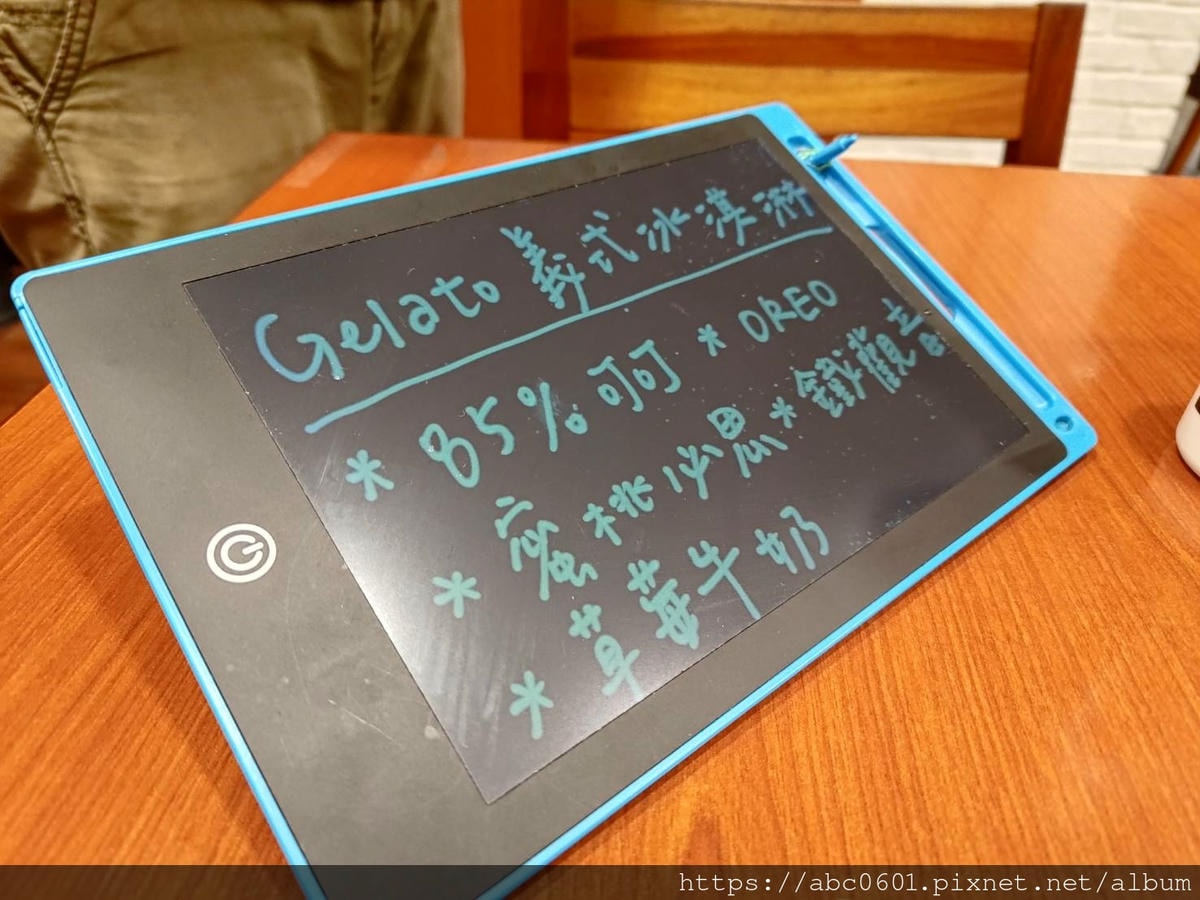 Gelato 義式冰淇淋
* 85% 可可 * OREO
* 蜜桃必思 * 鐵觀音
* 草莓牛奶
https://abc0601.pixnet.net/album